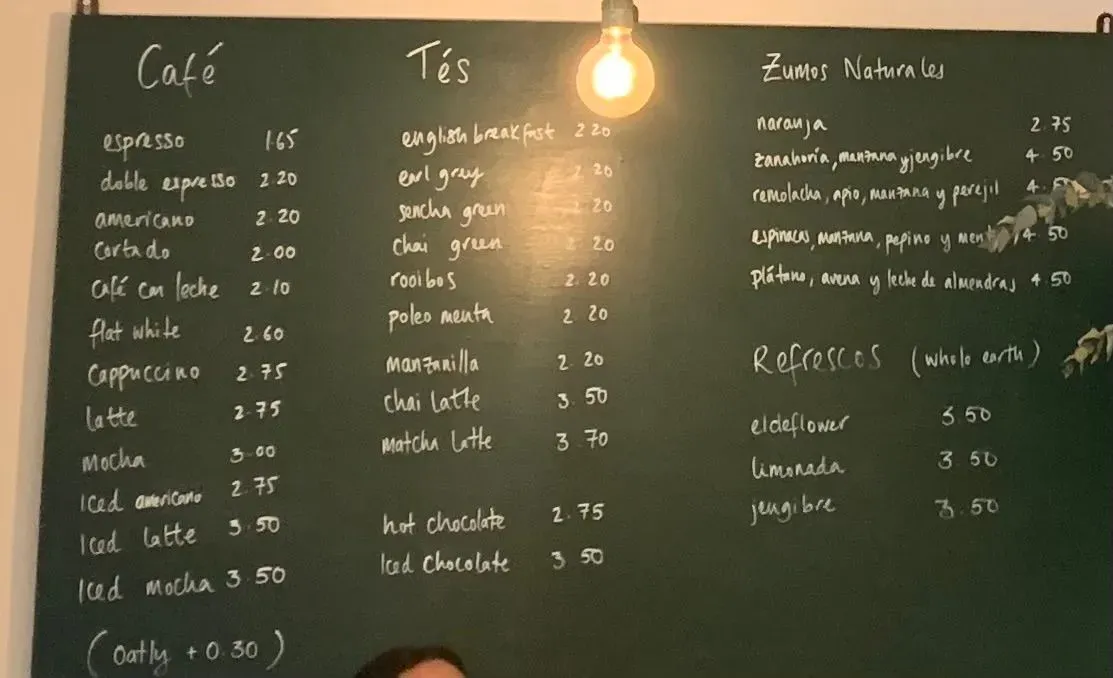 Café
espresso 1.65
doble espresso 2.20
americano 2.20
Cortado 2.00
café con leche 2.10
flat white 2.60
Cappuccino 2.75
latte 2.75
Mocha 3.00
Iced americano 2.75
Iced latte 3.50
Iced mocha 3.50
(Oatly +0.30)
Tés
english breakfast 2.20
earl grey 2.20
sencha green 2.20
chai green 2.20
rooibos 2.20
poleo menta 2.20
manzanilla 2.20
chai latte 3.50
matcha latte 3.70
hot chocolate 2.75
Iced chocolate 3.50
Zumos Naturales
naranja 2.75
zanahoría, manzana y jengibre 4.50
remolacha, apio, manzana y perejil
espinacas, manzana, pepino y 4.50
plátano, avena y leche de almendras 4.50
Refrescos (whole earth)
eldeflower 3.50
limonada 3.50
jengibre 3.50